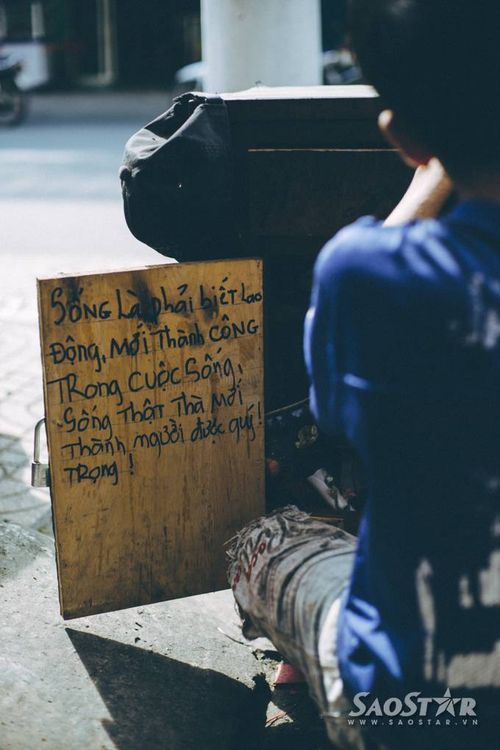 SỐNG Là phải biết Lao
Động, Mới Thành CÔNG
TRong CUỘC SỐNG,
SỐNG THẬT THÀ MỚI
Thành người được quý!
TRỌNG!
SAOSTAR
WWW.SAOSTAR.VN